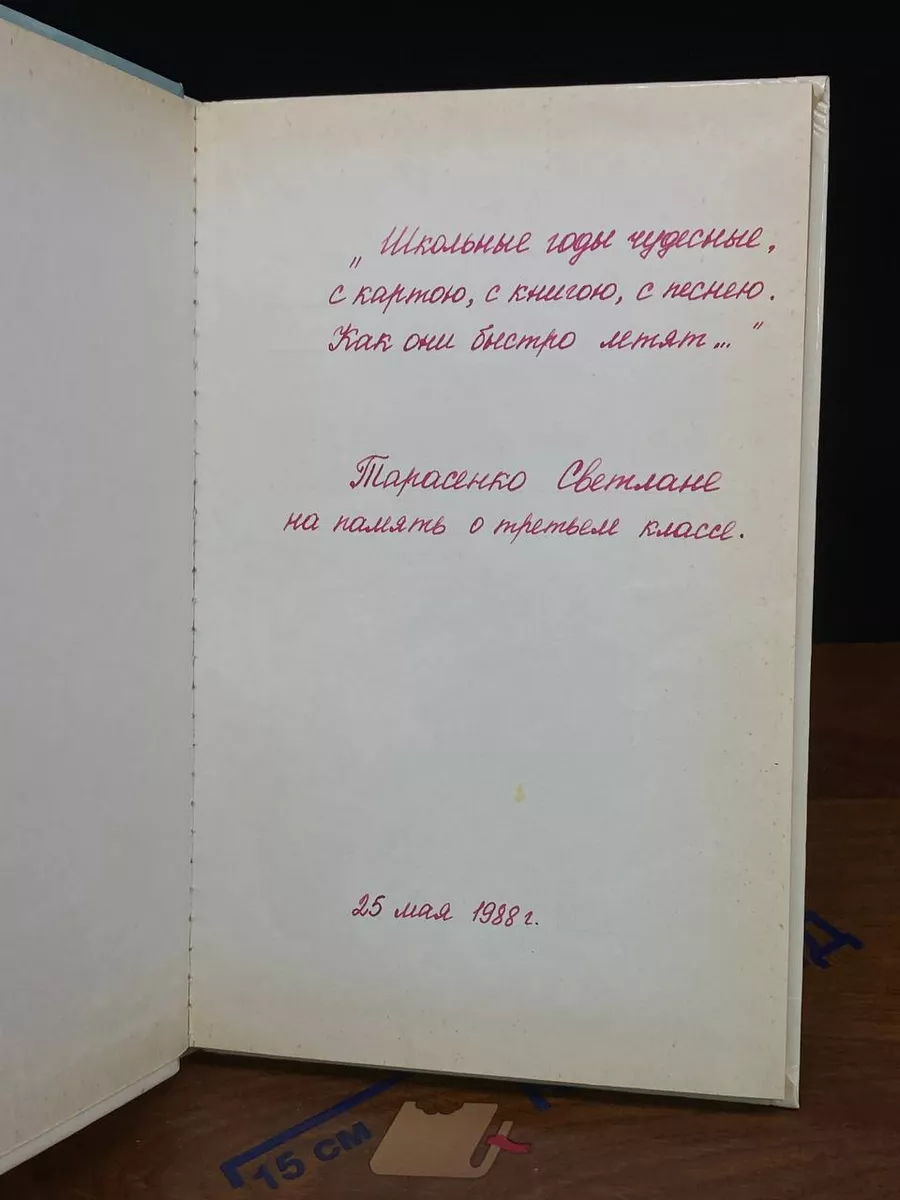 „Школьные годы чудесные,
с картою, с книгою, с песнею.
Как они быстро летят..."
Тарасенко Светлане
на память о третьем классе.
25 мая 1988 г.
15 см